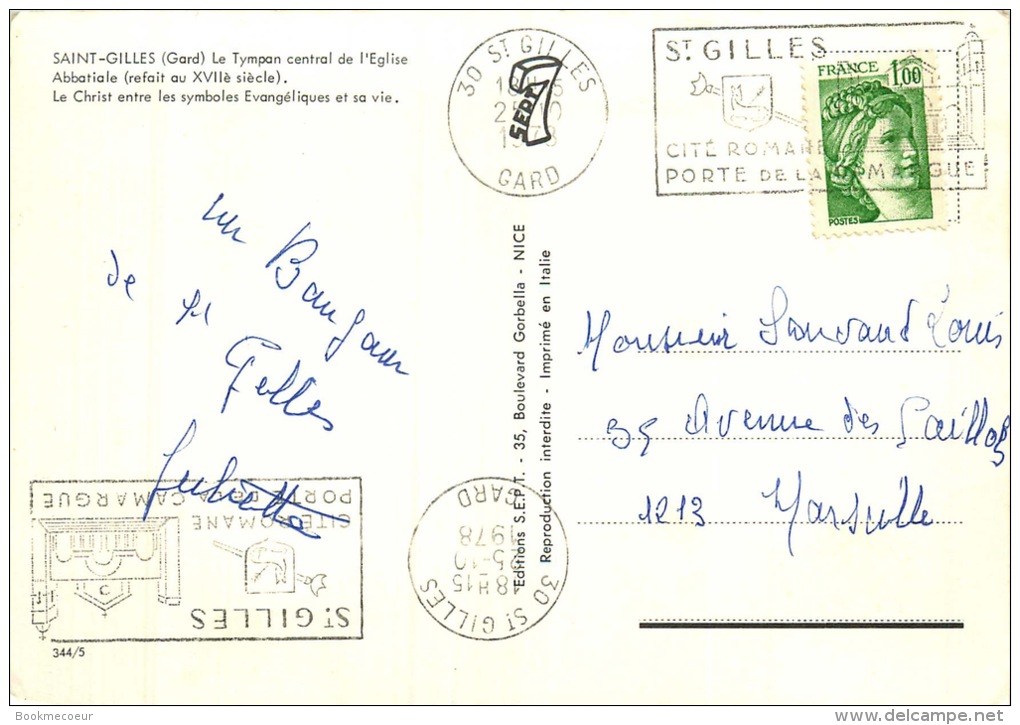 SAINT-GILLES (Gard) Le Tympan central de l'Eglise
Abbatiale (refait au XVIIè siècle).
Le Christ entre les symboles Evangéliques et sa vie.
30 ST GILLES
25-10
1978
GARD
SEPT
ST. GILLES
CITÉ ROMANE
PORTE DE LA CAMARGUE
FRANCE 1,00
POSTES
un Bonjour
de St
Gilles
Juliette
Editions S.E.P.T. - 35, Boulevard Gorbella - NICE
Reproduction interdite - Imprimé en Italie
Monsieur Louis
35 Avenue des Caillols
1213 Marseille
30 ST GILLES
18H15
25-10
1978
GARD
ST. GILLES
CITÉ ROMANE
PORTE DE LA CAMARGUE
344/5
Bookmecoeur
delcampe.net